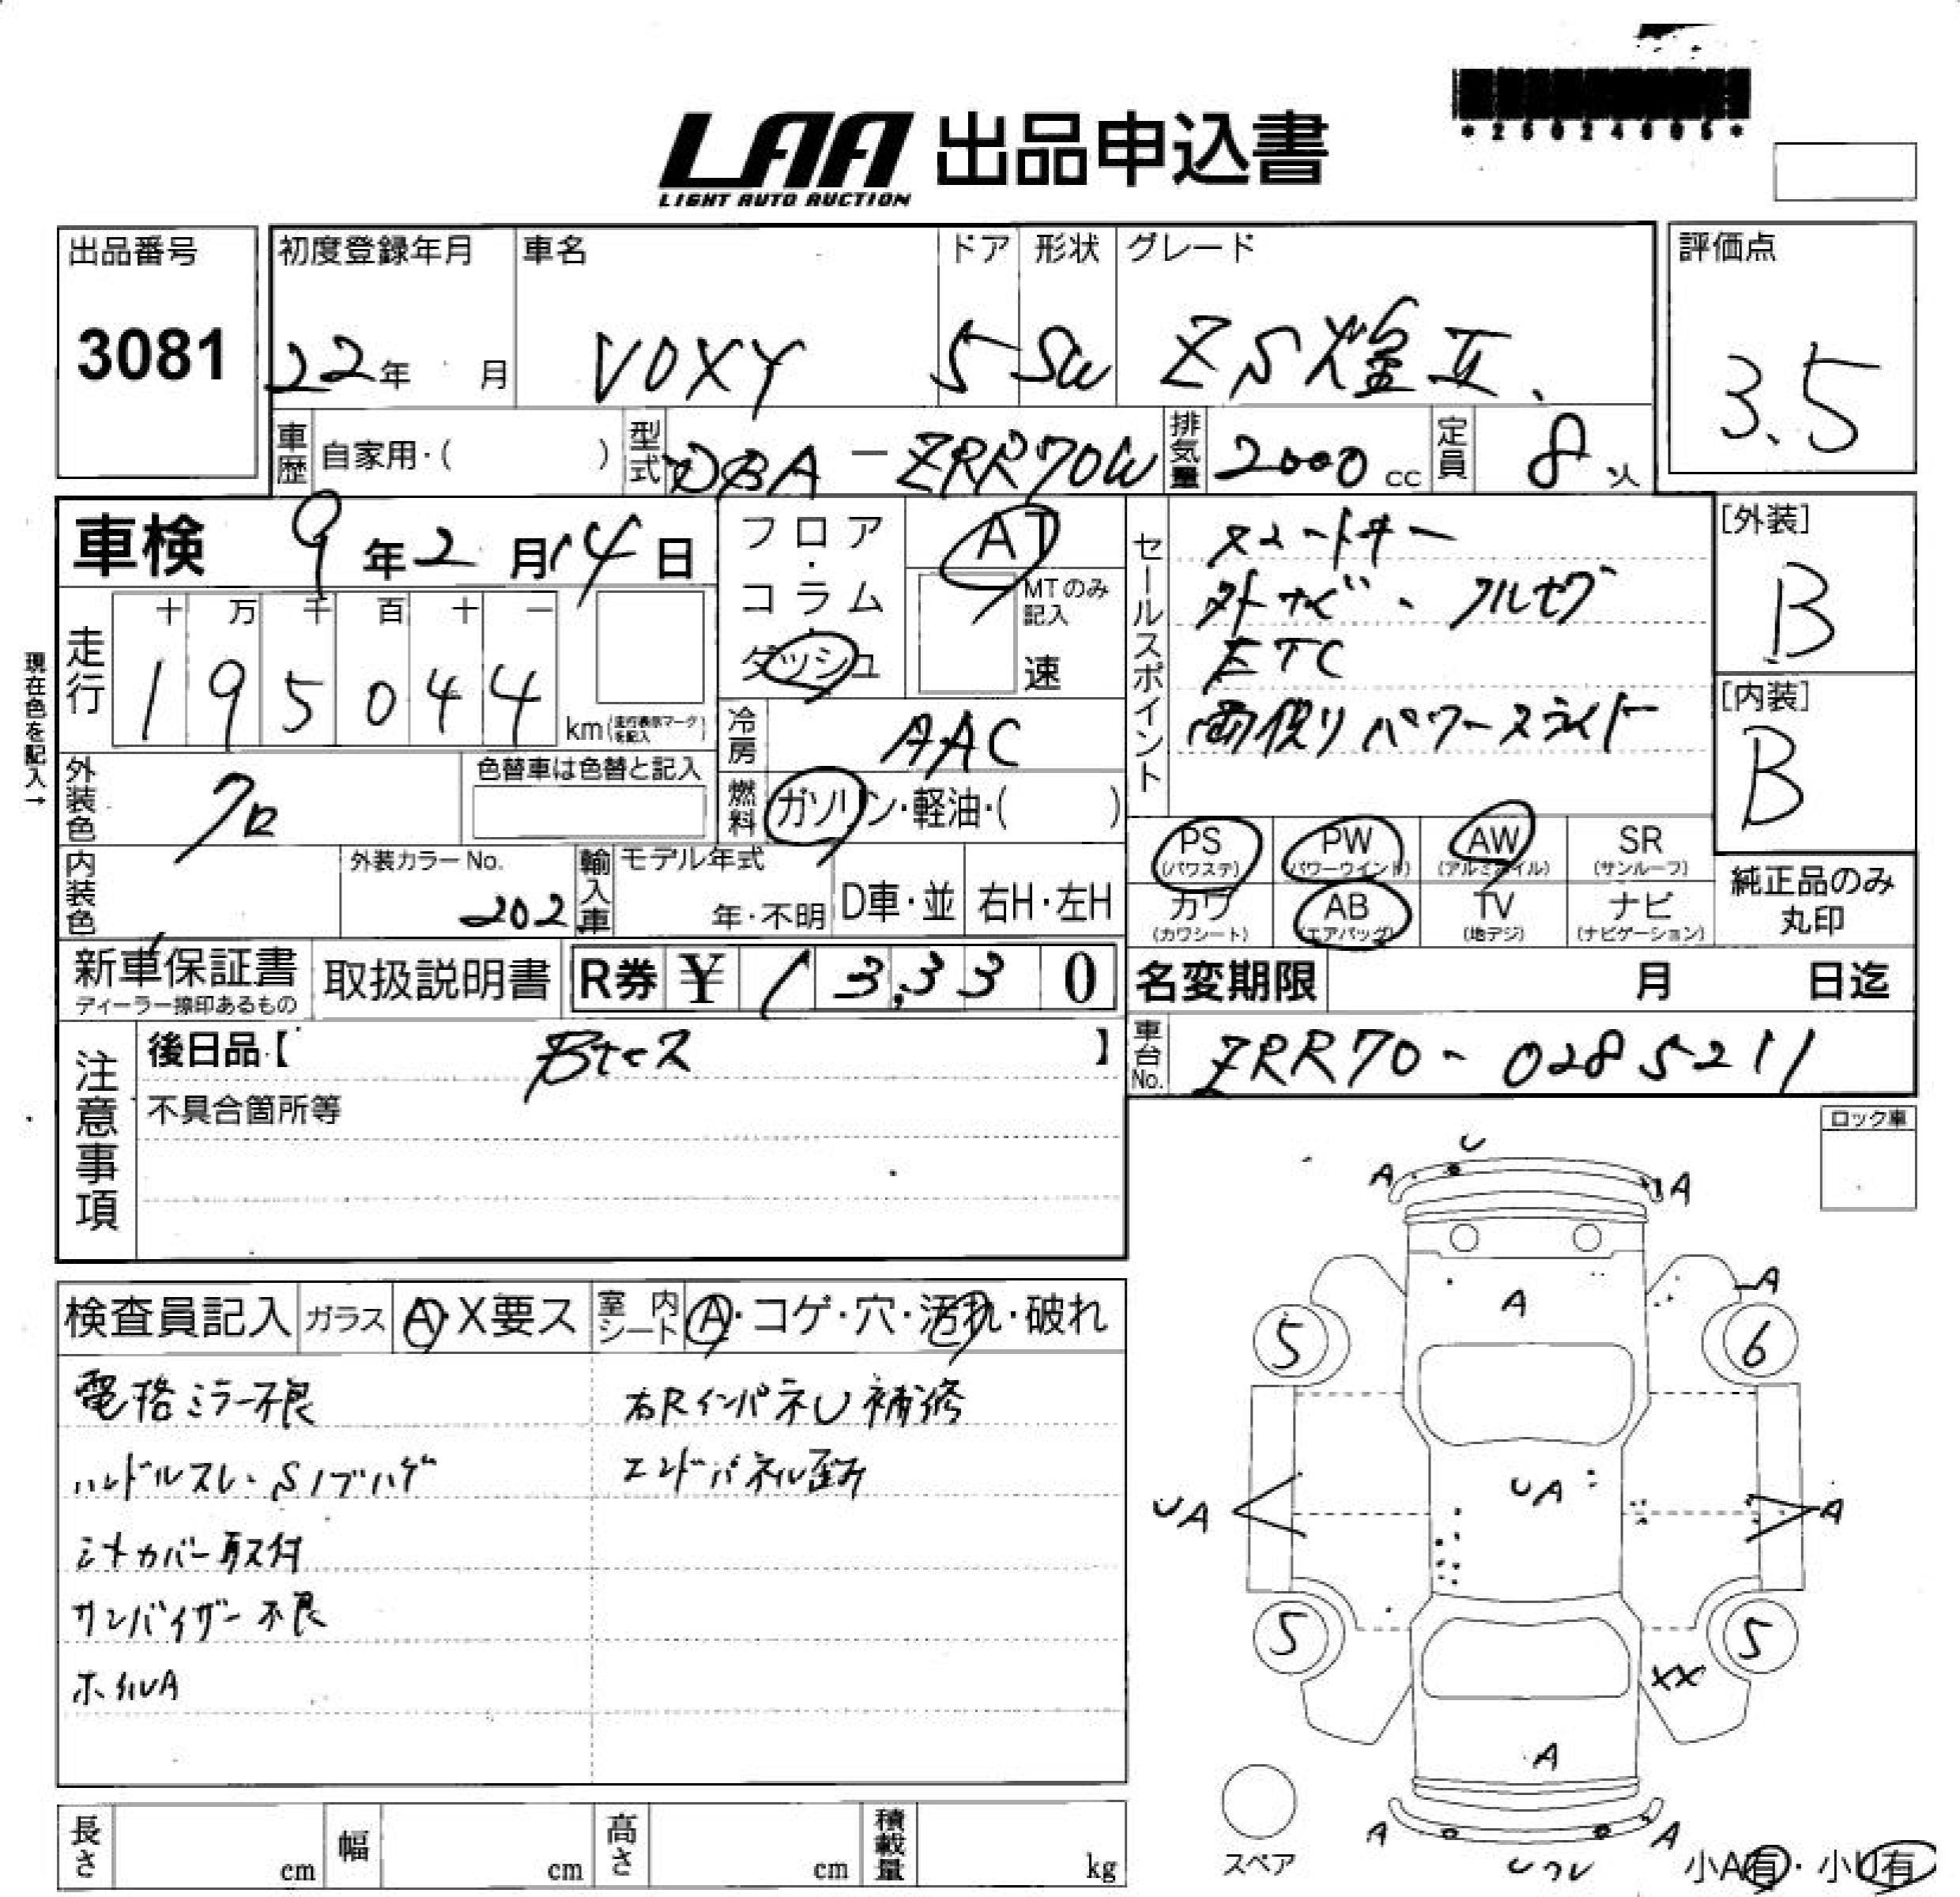 *25024605*
LAA 出品申込書
LIGHT AUTO AUCTION
出品番号 初度登録年月 車名 ドア 形状 グレード 評価点
3081 22年 月 VOXY 5 SW ZS煌Ⅱ 3.5
車歴 自家用・( ) 型式 DBA-ZRR70W 排気量 2000cc 定員 8人
車検 9年2月14日
フロア・コラム・ダッシュ AT
MTのみ記入 速
セールスポイント
スマートキー
外ナビ、フルセグ
ETC
両側パワースライド
[外装]
B
[内装]
B
現在色を記入→
走行 十 万 千 百 十 一
1 9 5 0 4 4 km(走行表示マークを記入)
冷房 AAC
外装色 クロ 色替車は色替と記入
燃料 ガソリン・軽油・( )
PS(パワステ) PW(パワーウインド) AW(アルミホイル) SR(サンルーフ)
カワ(カワシート) AB(エアバッグ) TV(地デジ) ナビ(ナビゲーション)
純正品のみ丸印
内装色 外装カラーNo. 202 輸入車 モデル年式 年・不明 D車・並 右H・左H
新車保証書 ディーラー捺印あるもの 取扱説明書 R券 ¥ 13,330
名変期限 月 日迄
車台No. ZRR70-0285211
注意事項
後日品【 】
不具合箇所等
ロック車
検査員記入 ガラス A・X要ス 室内シート A・コゲ・穴・汚れ・破れ
電格ミラー不良 右Rインパネ U 補修
ハンドルスレ・Sノブハゲ エンドパネル歪み
シートカバー取付
サンバイザー不良
ホイルA
U
A A
A A
5 6
UA UA A
5 5
XX
A
A A
スペア
小A有・小U有
長さ cm 幅 cm 高さ cm 積載量 kg